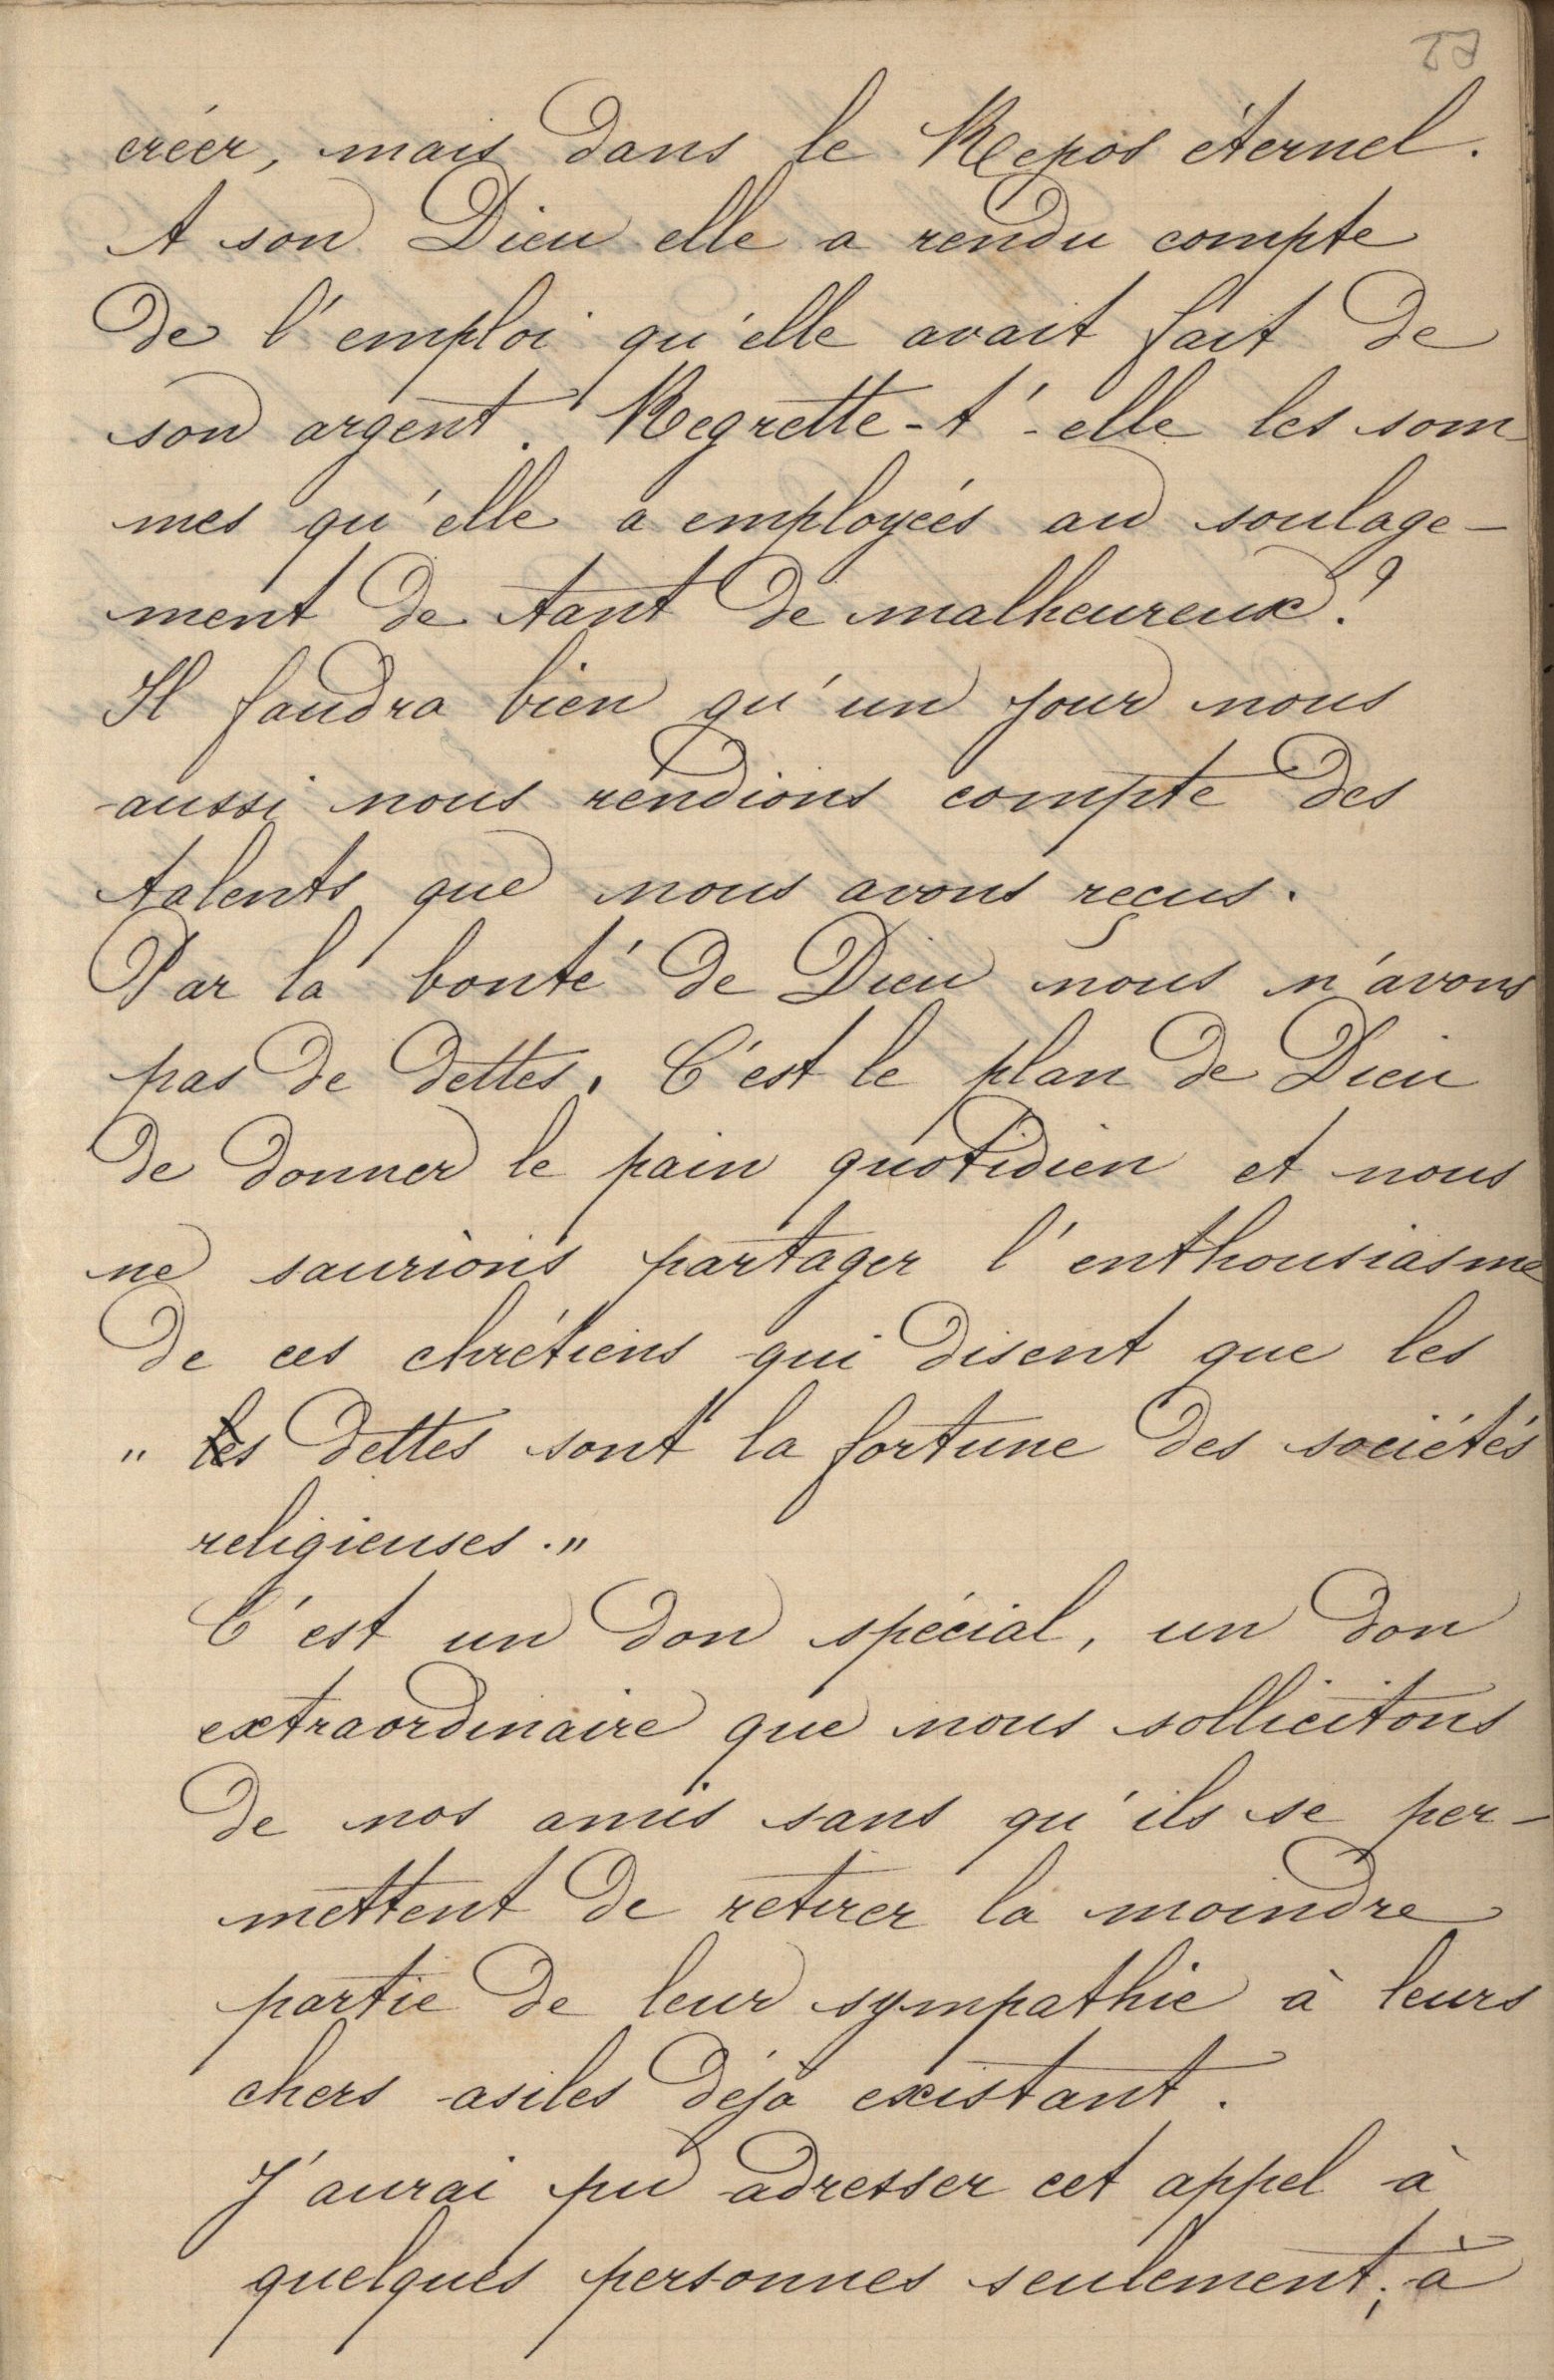 créer, mais dans le Repos éternel.
A son Dieu elle a rendu compte
de l'emploi qu'elle avait fait de
son argent. Regrette-t'-elle les som
mes qu'elle a employées au soulage-
ment de tant de malheureux ?
Il faudra bien qu'un jour nous
aussi nous rendions compte des
talents que nous avons reçus.
Par la bonté de Dieu nous n'avons
pas de dettes. C'est le plan de Dieu
de donner le pain quotidien et nous
ne saurions partager l'enthousiasme
de ces chrétiens qui disent que les
" les dettes sont la fortune des sociétés
religieuses."
C'est un don spécial, un don
extraordinaire que nous sollicitons
de nos amis sans qu'ils se per-
mettent de retirer la moindre
partie de leur sympathie à leurs
chers asiles déjà existant.
J'aurai pu adresser cet appel à
quelques personnes seulement; à